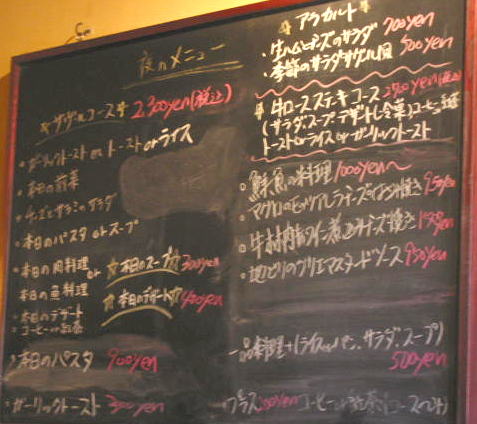 夜のメニュー
コース 2,300yen(税込)
・ガーリックトースト or トースト or ライス
・本日の前菜
・チーズとサラミのサラダ
・本日のパスタ or スープ
・本日の肉料理
or
本日の魚料理
・本日のデザート
・コーヒー or 紅茶
☆本日のスープ☆ 300yen
☆本日のデザート☆ 400yen
・本日のパスタ 900yen
・ガーリックトースト 300yen
アラカルト
・生ハムとチーズのサラダ 700yen
・季節のサラダ 風 500yen
牛ロースステーキコース (税込)
(サラダ、スープ、デザート コーヒー or 紅茶
トースト or ライス or ガーリックトースト
・鮮魚の料理 1000yen〜
・マグロの 焼き 950yen
・牛 煮込みチーズ焼き
・地どりのグリエマスタードソース 950yen
一品料理+(ライス or パン、サラダ、スープ)
500yen
プラス コーヒー or 紅茶